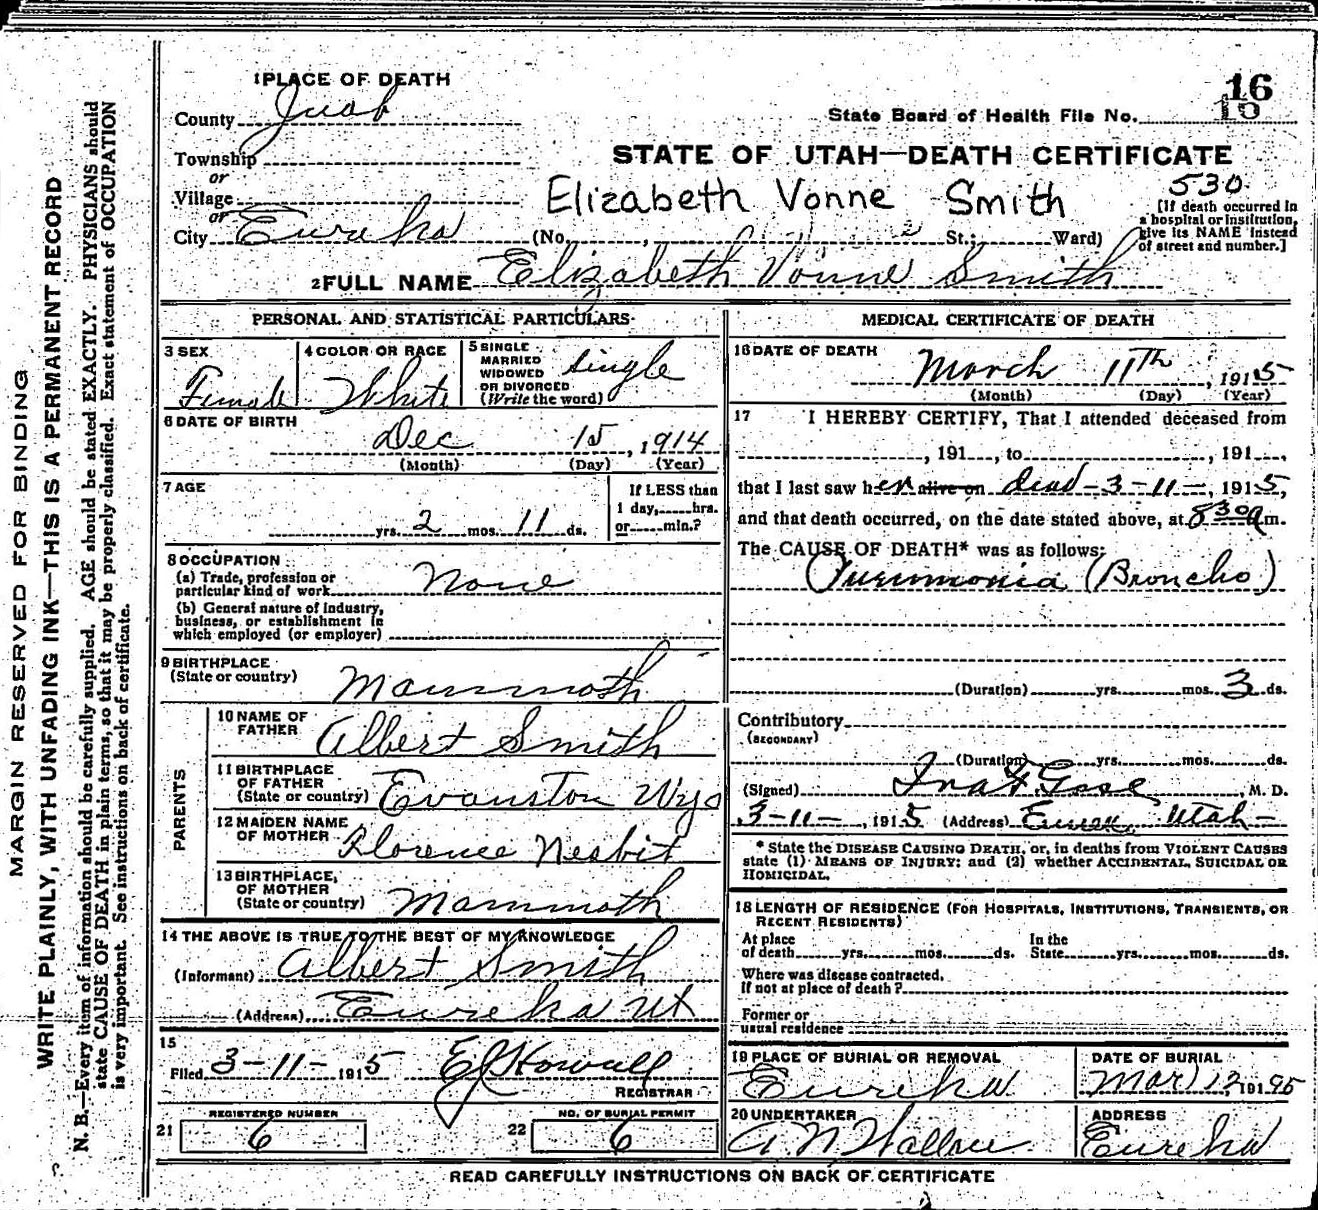 MARGIN RESERVED FOR BINDING
WRITE PLAINLY, WITH UNFADING INK—THIS IS A PERMANENT RECORD
N. B.—Every item of information should be carefully supplied. AGE should be stated EXACTLY. PHYSICIANS should
state CAUSE OF DEATH in plain terms, so that it may be properly classified. Exact statement of OCCUPATION
is very important. See instructions on back of certificate.
1 PLACE OF DEATH
County Juab
Township
or
Village
or
City Eureka
16
State Board of Health File No.
STATE OF UTAH—DEATH CERTIFICATE
Elizabeth Vonne Smith
530
(No. , St.; Ward)
[If death occurred in
a hospital or institution,
give its NAME instead
of street and number.]
2 FULL NAME Elizabeth Vonne Smith
PERSONAL AND STATISTICAL PARTICULARS
3 SEX
Female
4 COLOR OR RACE
White
5 SINGLE
MARRIED
WIDOWED
OR DIVORCED
(Write the word)
Single
6 DATE OF BIRTH
Dec 15, 1914
(Month) (Day) (Year)
7 AGE
yrs. 2 mos. 11 ds.
If LESS than
1 day, hrs.
or min.?
8 OCCUPATION
(a) Trade, profession or
particular kind of work None
(b) General nature of industry,
business, or establishment in
which employed (or employer)
9 BIRTHPLACE
(State or country) Mammoth
PARENTS
10 NAME OF
FATHER Albert Smith
11 BIRTHPLACE
OF FATHER
(State or country) Evanston Wyo
12 MAIDEN NAME
OF MOTHER Florence Nesbit
13 BIRTHPLACE
OF MOTHER
(State or country) Mammoth
14 THE ABOVE IS TRUE TO THE BEST OF MY KNOWLEDGE
(Informant) Albert Smith
(Address) Eureka Ut
15
Filed 3-11- 1915 E J Howell
REGISTRAR
REGISTERED NUMBER
21 6
NO. OF BURIAL PERMIT
22 6
MEDICAL CERTIFICATE OF DEATH
16 DATE OF DEATH
March 11th, 1915
(Month) (Day) (Year)
17 I HEREBY CERTIFY, That I attended deceased from
, 191 , to , 191 ,
that I last saw her alive on dead -3-11-, 1915,
and that death occurred, on the date stated above, at 8 30 a m.
The CAUSE OF DEATH* was as follows:
Pneumonia (Broncho)
(Duration) yrs. mos. 3 ds.
Contributory
(SECONDARY)
(Duration) yrs. mos. ds.
(Signed) , M. D.
3-11-, 1915 (Address) Eureka Utah-
* State the DISEASE CAUSING DEATH, or, in deaths from VIOLENT CAUSES
state (1) MEANS OF INJURY; and (2) whether ACCIDENTAL, SUICIDAL OR
HOMICIDAL.
18 LENGTH OF RESIDENCE (FOR HOSPITALS, INSTITUTIONS, TRANSIENTS, OR
RECENT RESIDENTS)
At place
of death yrs. mos. ds.
In the
State yrs. mos. ds.
Where was disease contracted,
If not at place of death?
Former or
usual residence
19 PLACE OF BURIAL OR REMOVAL
Eureka
DATE OF BURIAL
Mar 12, 1915
20 UNDERTAKER
A N Wallace
ADDRESS
Eureka
READ CAREFULLY INSTRUCTIONS ON BACK OF CERTIFICATE